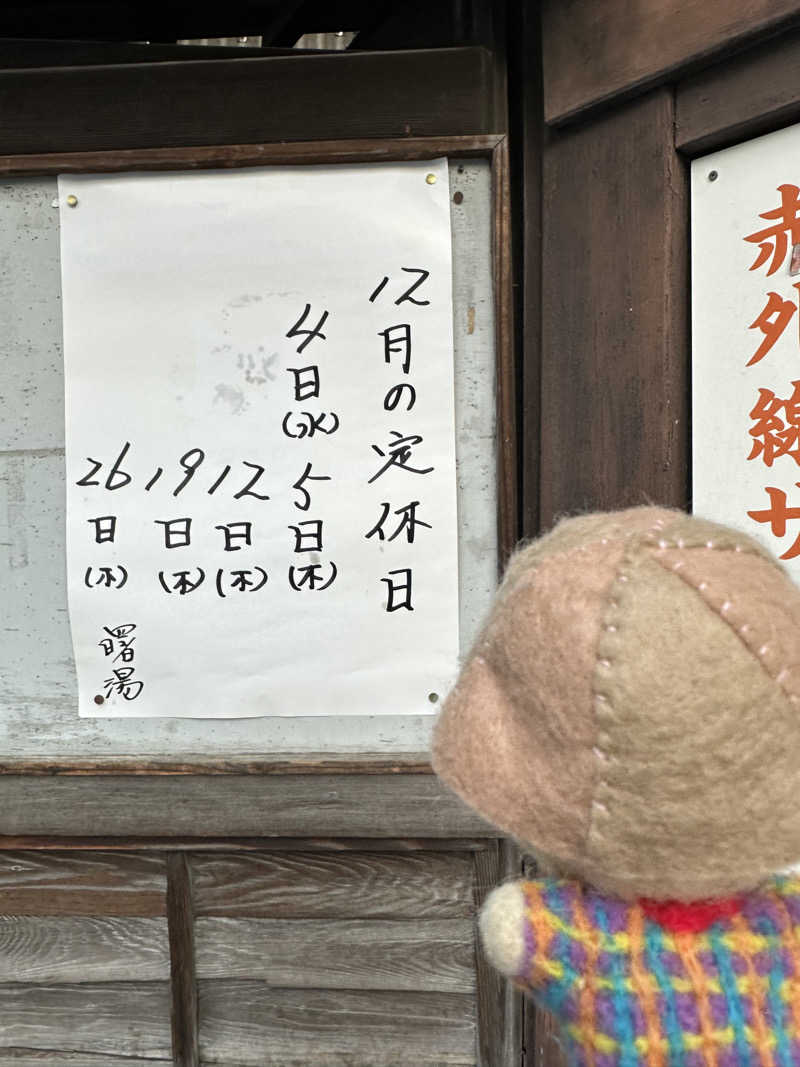 12月の定休日
4日(水)
5日(木)
12日(木)
19日(木)
26日(木)
曙湯
赤外線サ